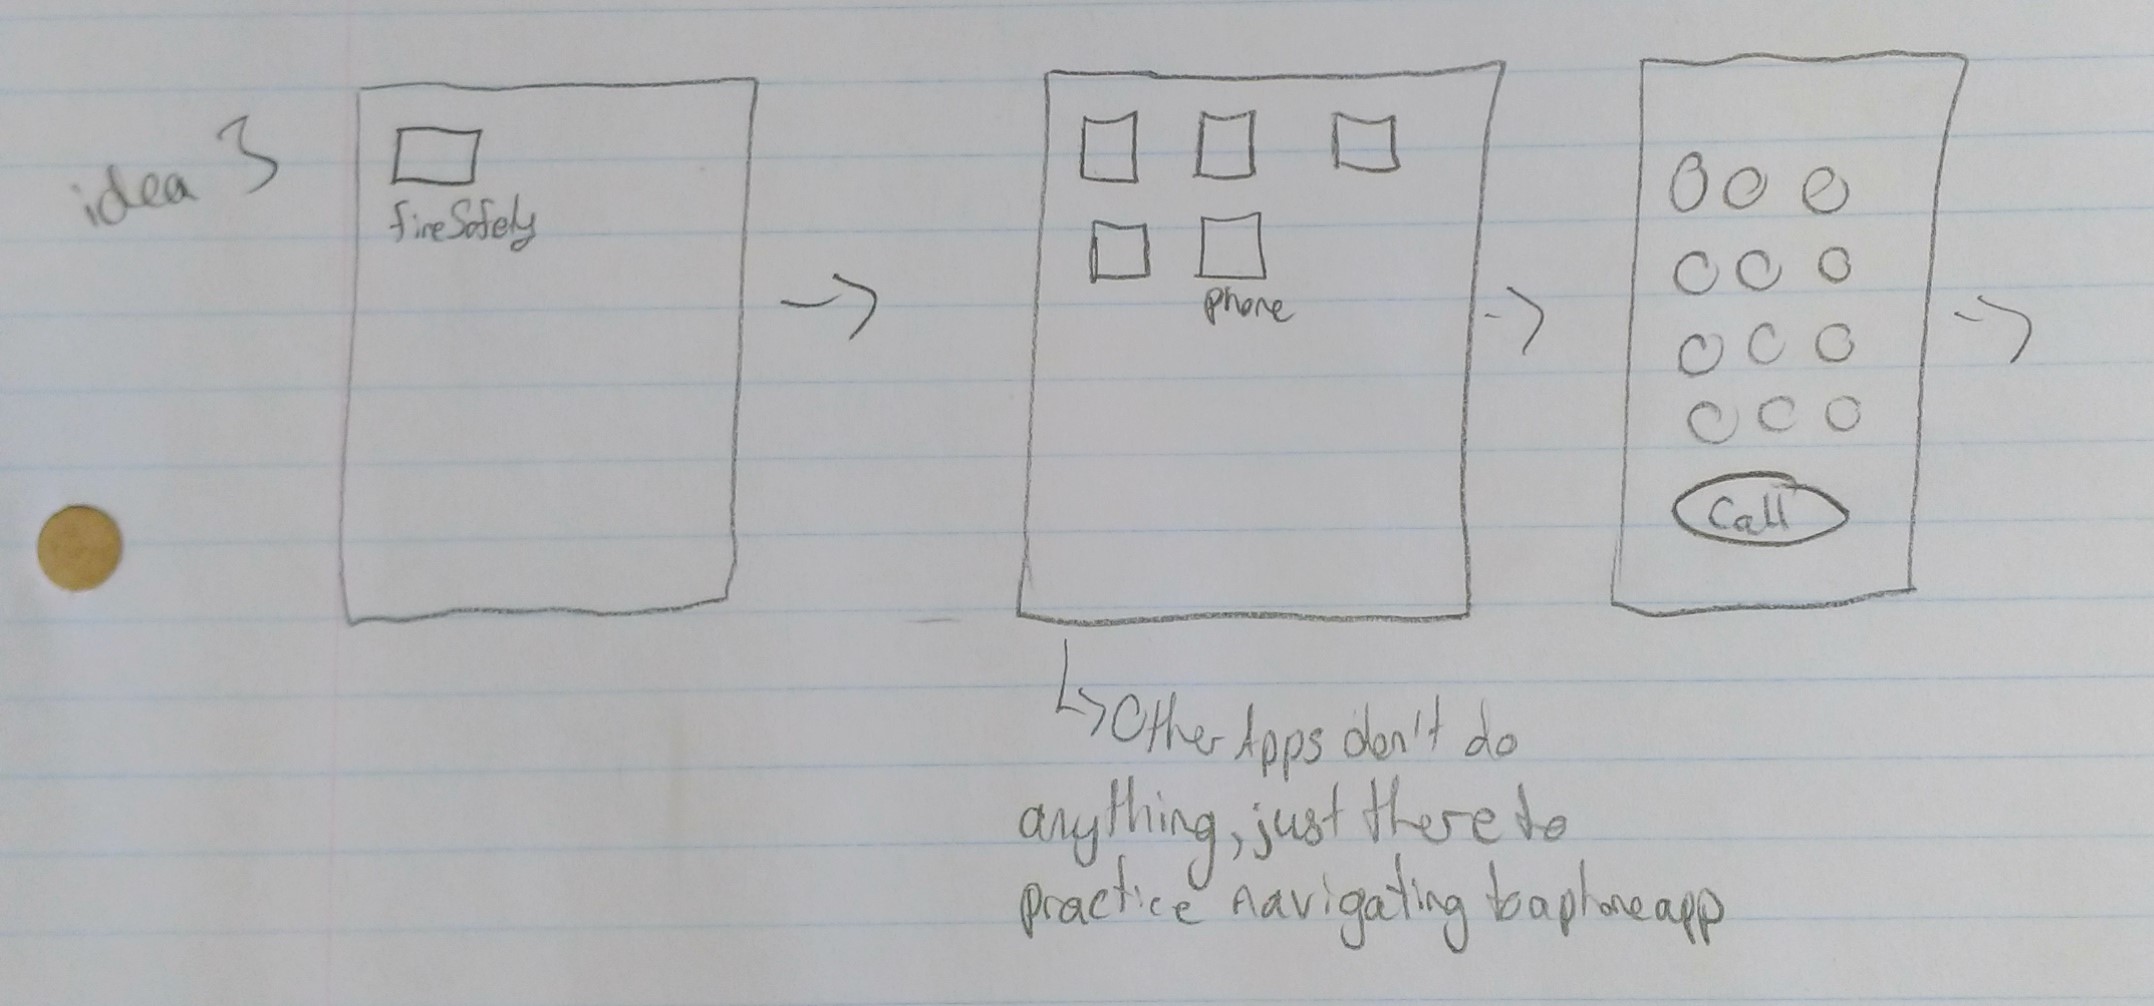 idea 3
fireSafety
phone
Call
Other Apps don't do
anything, just there to
practice navigating to a phone app